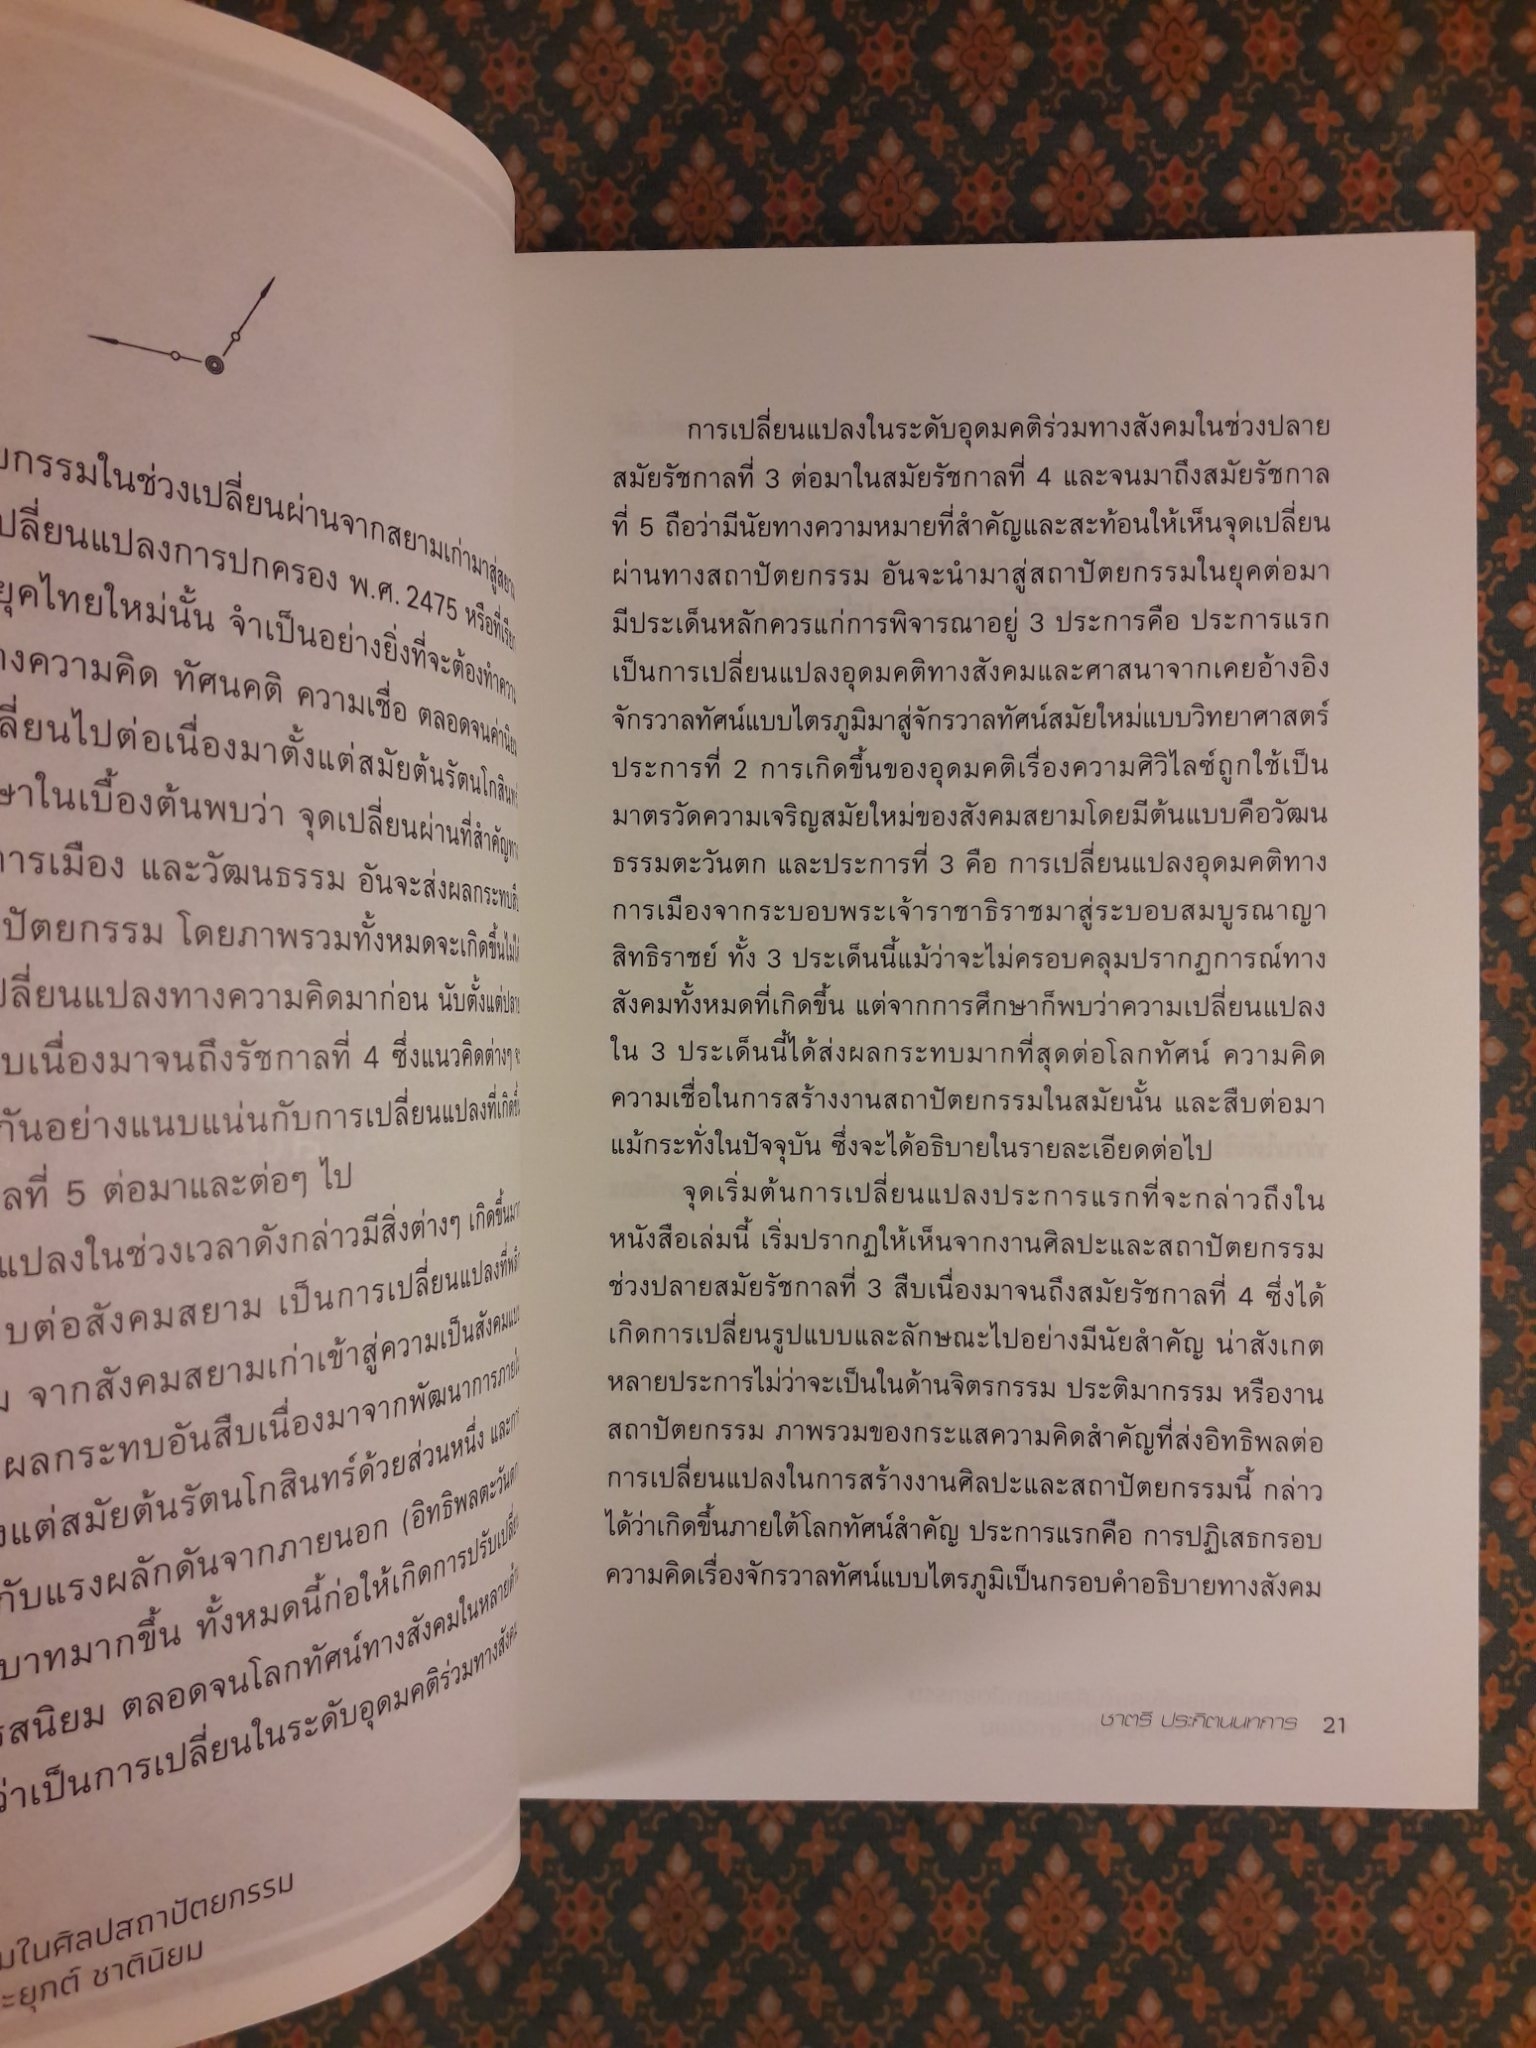 กรรมในช่วงเปลี่ยนผ่านจากสยามเก่ามาสู่
ปลี่ยนแปลงการปกครอง พ.ศ. 2475 หรือที่เรีย
ยุคไทยใหม่นั้น จำเป็นอย่างยิ่งที่จะต้องทำควา
างความคิด ทัศนคติ ความเชื่อ ตลอดจนค่านิย
ลี่ยนไปต่อเนื่องมาตั้งแต่สมัยต้นรัตนโกสินท
ษาในเบื้องต้นพบว่า จุดเปลี่ยนผ่านที่สำคัญ
การเมือง และวัฒนธรรม อันจะส่งผลกระทบ
ปัตยกรรม โดยภาพรวมทั้งหมดจะเกิดขึ้นไม่ได้
ปลี่ยนแปลงทางความคิดมาก่อน นับตั้งแต่ปลา
บเนื่องมาจนถึงรัชกาลที่ 4 ซึ่งแนวคิดต่างๆ
กันอย่างแนบแน่นกับการเปลี่ยนแปลงที่เกิดขึ้
ลที่ 5 ต่อมาและต่อๆ ไป
แปลงในช่วงเวลาดังกล่าวมีสิ่งต่างๆ เกิดขึ้นมา
บต่อสังคมสยาม เป็นการเปลี่ยนแปลงที่
ม จากสังคมสยามเก่าเข้าสู่ความเป็นสังคมแบบ
ผลกระทบอันสืบเนื่องมาจากพัฒนาการภายใ
งแต่สมัยต้นรัตนโกสินทร์ด้วยส่วนหนึ่ง และกา
กับแรงผลักดันจากภายนอก (อิทธิพลตะวันตก
บาทมากขึ้น ทั้งหมดนี้ก่อให้เกิดการปรับเปลี่ย
รสนิยม ตลอดจนโลกทัศน์ทางสังคมในหลายด้า
ว่าเป็นการเปลี่ยนในระดับอุดมคติร่วมทางสังคม
มในศิลปสถาปัตยกรรม
ะยุกต์ ชาตินิยม
การเปลี่ยนแปลงในระดับอุดมคติร่วมทางสังคมในช่วงปลาย
สมัยรัชกาลที่ 3 ต่อมาในสมัยรัชกาลที่ 4 และจนมาถึงสมัยรัชกาล
ที่ 5 ถือว่ามีนัยทางความหมายที่สำคัญและสะท้อนให้เห็นจุดเปลี่ยน
ผ่านทางสถาปัตยกรรม อันจะนำมาสู่สถาปัตยกรรมในยุคต่อมา
มีประเด็นหลักควรแก่การพิจารณาอยู่ 3 ประการคือ ประการแรก
เป็นการเปลี่ยนแปลงอุดมคติทางสังคมและศาสนาจากเคยอ้างอิง
จักรวาลทัศน์แบบไตรภูมิมาสู่จักรวาลทัศน์สมัยใหม่แบบวิทยาศาสตร์
ประการที่ 2 การเกิดขึ้นของอุดมคติเรื่องความศิวิไลซ์ถูกใช้เป็น
มาตรวัดความเจริญสมัยใหม่ของสังคมสยามโดยมีต้นแบบคือวัฒน
ธรรมตะวันตก และประการที่ 3 คือ การเปลี่ยนแปลงอุดมคติทาง
การเมืองจากระบอบพระเจ้าราชาธิราชมาสู่ระบอบสมบูรณาญา
สิทธิราชย์ ทั้ง 3 ประเด็นนี้แม้ว่าจะไม่ครอบคลุมปรากฏการณ์ทาง
สังคมทั้งหมดที่เกิดขึ้น แต่จากการศึกษาก็พบว่าความเปลี่ยนแปลง
ใน 3 ประเด็นนี้ได้ส่งผลกระทบมากที่สุดต่อโลกทัศน์ ความคิด
ความเชื่อในการสร้างงานสถาปัตยกรรมในสมัยนั้น และสืบต่อมา
แม้กระทั่งในปัจจุบัน ซึ่งจะได้อธิบายในรายละเอียดต่อไป
จุดเริ่มต้นการเปลี่ยนแปลงประการแรกที่จะกล่าวถึงใน
หนังสือเล่มนี้ เริ่มปรากฏให้เห็นจากงานศิลปะและสถาปัตยกรรม
ช่วงปลายสมัยรัชกาลที่ 3 สืบเนื่องมาจนถึงสมัยรัชกาลที่ 4 ซึ่งได้
เกิดการเปลี่ยนรูปแบบและลักษณะไปอย่างมีนัยสำคัญ น่าสังเกต
หลายประการไม่ว่าจะเป็นในด้านจิตรกรรม ประติมากรรม หรืองาน
สถาปัตยกรรม ภาพรวมของกระแสความคิดสำคัญที่ส่งอิทธิพลต่อ
การเปลี่ยนแปลงในการสร้างงานศิลปะและสถาปัตยกรรมนี้ กล่าว
ได้ว่าเกิดขึ้นภายใต้โลกทัศน์สำคัญ ประการแรกคือ การปฏิเสธกรอบ
ความคิดเรื่องจักรวาลทัศน์แบบไตรภูมิเป็นกรอบคำอธิบายทางสังคม
ชาตรี ประกิตนนทการ 21